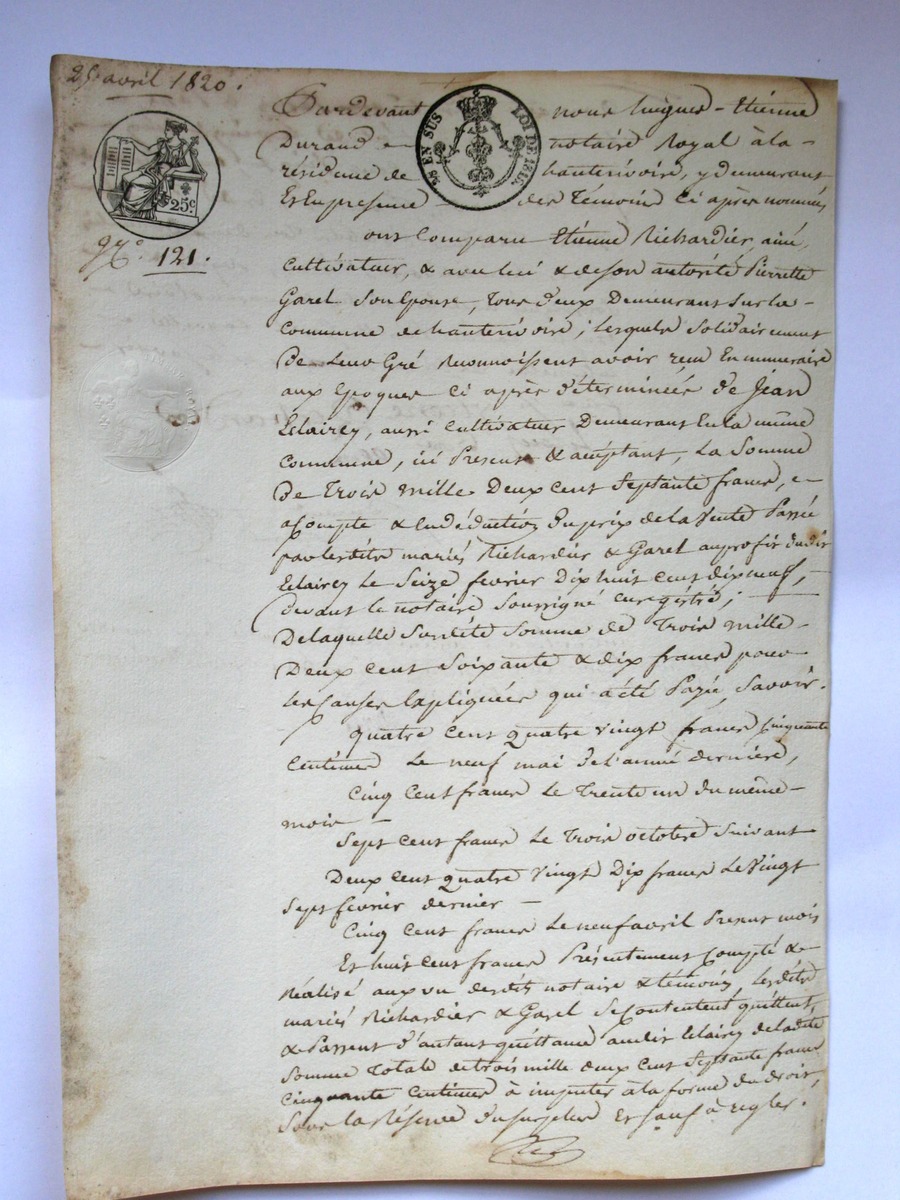 25 avril 1820.
25c
N.° 121.
EN SUS LOI DE
Pardevant nous hugues - Etiénne
Durand notaire Royal à la -
résidence de hauterivoire, y demeurant
Et En presence des Témoins Ci après nommés
ont Comparu Etiénne Richardier, ainé
Cultivateur, & avec lui & de son autorité Pierrette
Garel Son Epouse, Tous deux Demeurant sur la -
Commune de hauterivoire; lesquels Solidairement
De Leur Gré Reconnoissent avoir reçu En numeraire
aux Epoques Ci après déterminées de Jean
Eclairey, aussi Cultivateur Demeurant En la même
Commune, ici Present & aceptant, La Somme
De Trois mille Deux cent Septante francs, e-
aCompte & En déduction Du prix de la Vente Passée
par lesdits mariés Richardier & Garel au profit dudit
Eclairey Le Seize fevrier Dix huit Cent dix neuf, -
devant le notaire Soussigné enregistré;
De laquelle Susdite Somme de Trois mille -
Deux cent Soixante & dix francs pour
les Causes Expliquées qui a été Payée, Savoir.
Quatre Cent quatre vingt francs Cinquante
Centimes Le neuf mai de l'année derniére,
Cinq Cent francs Le Trente un du même -
mois -
Sept Cent francs Le Trois octobre Suivant
Deux Cent quatre vingt Dix francs Le Vingt
Sept fevrier dernier -
Cinq Cent francs Le neuf avril Present mois
Et huit Cent francs Présentement Compté &
Réalisé aux vu desdits notaire & témoins, Lesdits
mariés Richardier & Garel Se Contentent quittent,
& Passent d'autant quittance audit Eclairey de ladite
Somme Totale de trois mille deux Cent Septante francs
Cinquante Centimes à imputer à la forme du droit,
Sous la Réserve du surplus Et Sauf à regler.